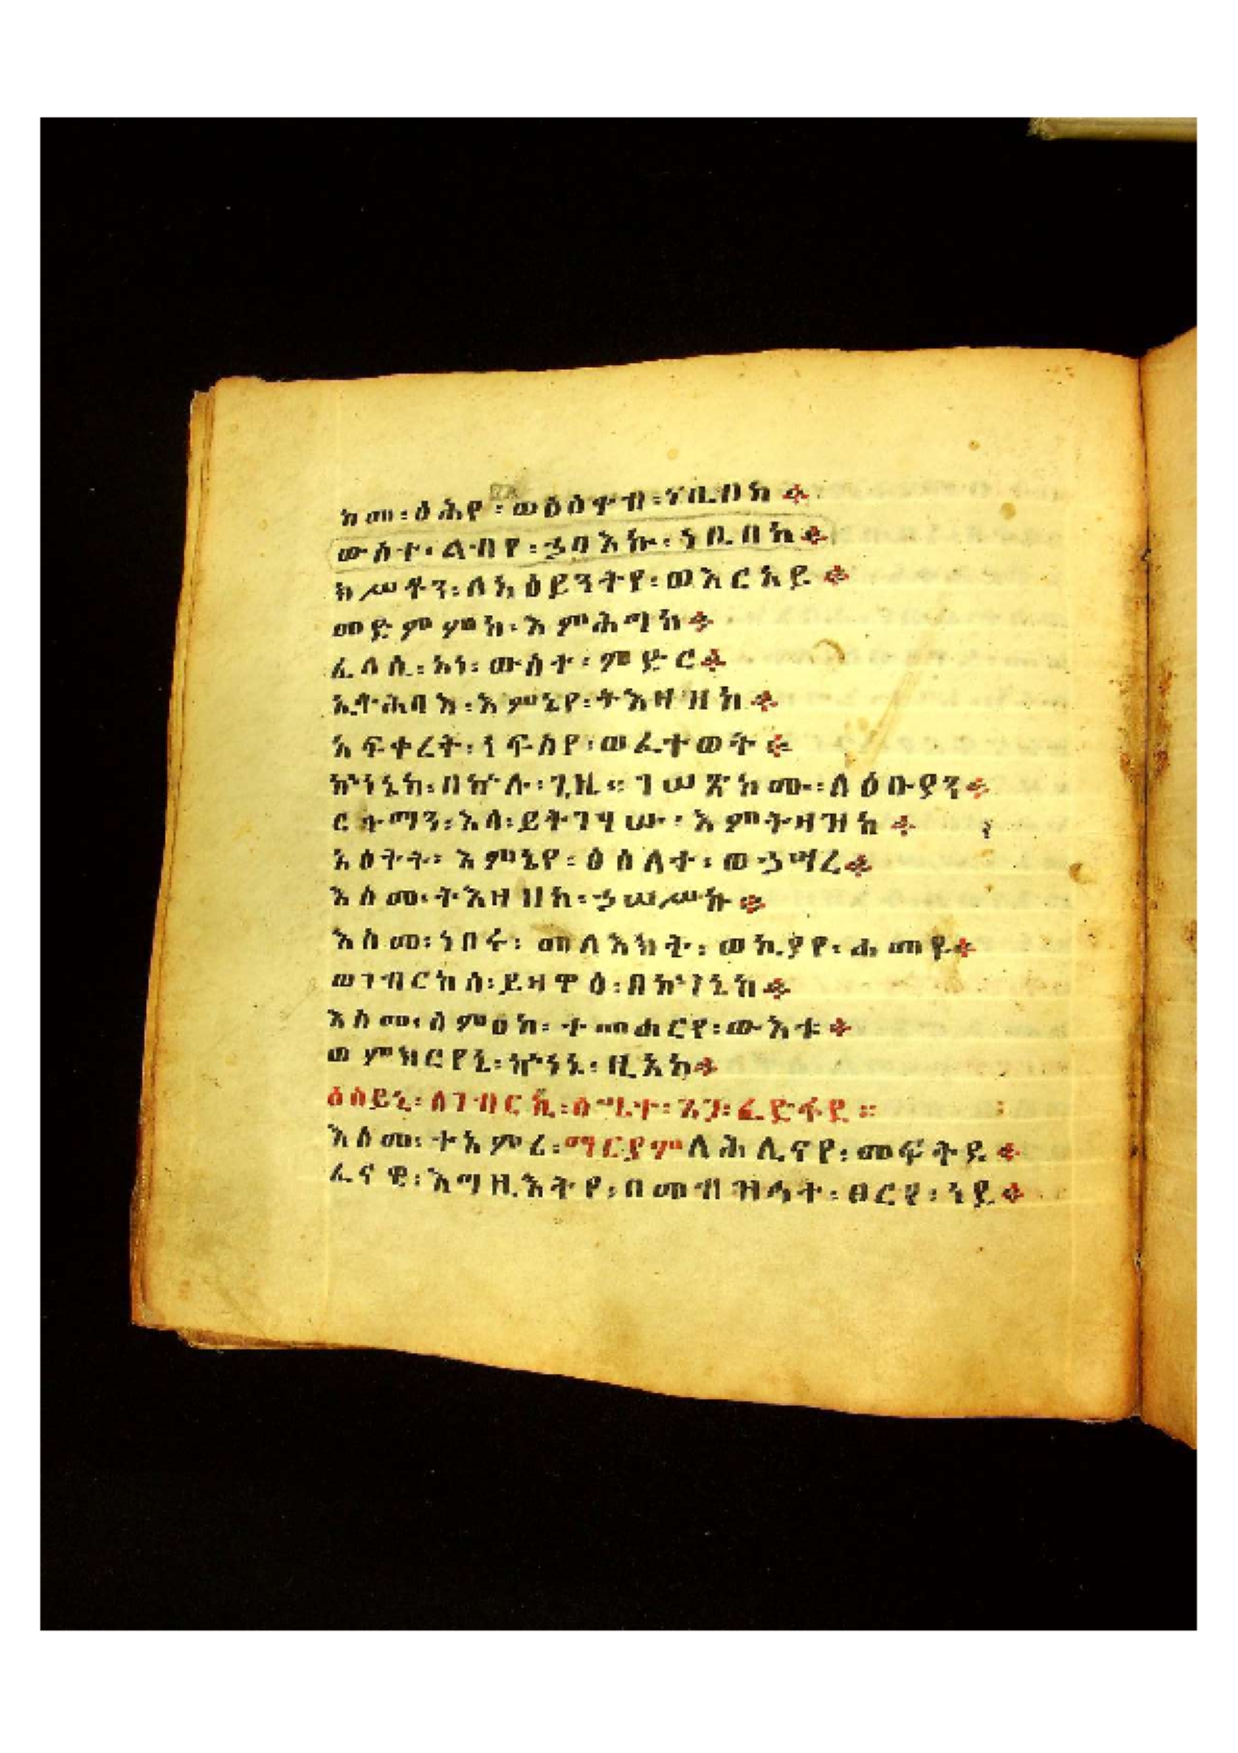 ከመ፡ዕሕየ፡ወዕዕቀብ፡ነቢብከ፨
ውስተ፡ልብየ፡ኃባእኩ፡ነቢበከ፨
ክሥቶን፡ለአዕይንትየ፡ወእርአይ፨
መድምምከ፡እምሕግከ፨
ፈላሲ፡አነ፡ውስተ፡ምድር፨
ኢትሕባእ፡እምኔየ፡ትእዛዛከ፨
አፍቀረት፡ነፍስየ፡ወፈተወት፨
ኵነኔከ፡በኵሉ፡ጊዜ፡፡ገሠጽከሙ፡ለዕቡያን፨
ርጉማን፡እለ፡ይትገሃሡ፡እምትዛዝከ፨
አዕትት፡እምኔየ፡ፅዕለተ፡ወኃሣረ፨
እስመ፡ትእዛዘከ፡ኃሠሥኩ፨
እስመ፡ነበሩ፡መላእክት፡ወኪያየ፡ሐመዩ፨
ወገብርከሰ፡ይዛዋዕ፡በኵነኔከ፨
እስመ፡ስምዐከ፡ተመሐርየ፡ውእቱ፨
ወምክርየኒ፡ኵነኔ፡ዚአከ፨
ዕሰይኒ፡ለገብርኪ፡
እስመ፡ተአምረ፡ማርያምለሕሊናየ፡መፍትይ፨
ፈናዊ፡እግዚእትየ፡በመብዝኅት፡ፀርየ፡ነይ፨